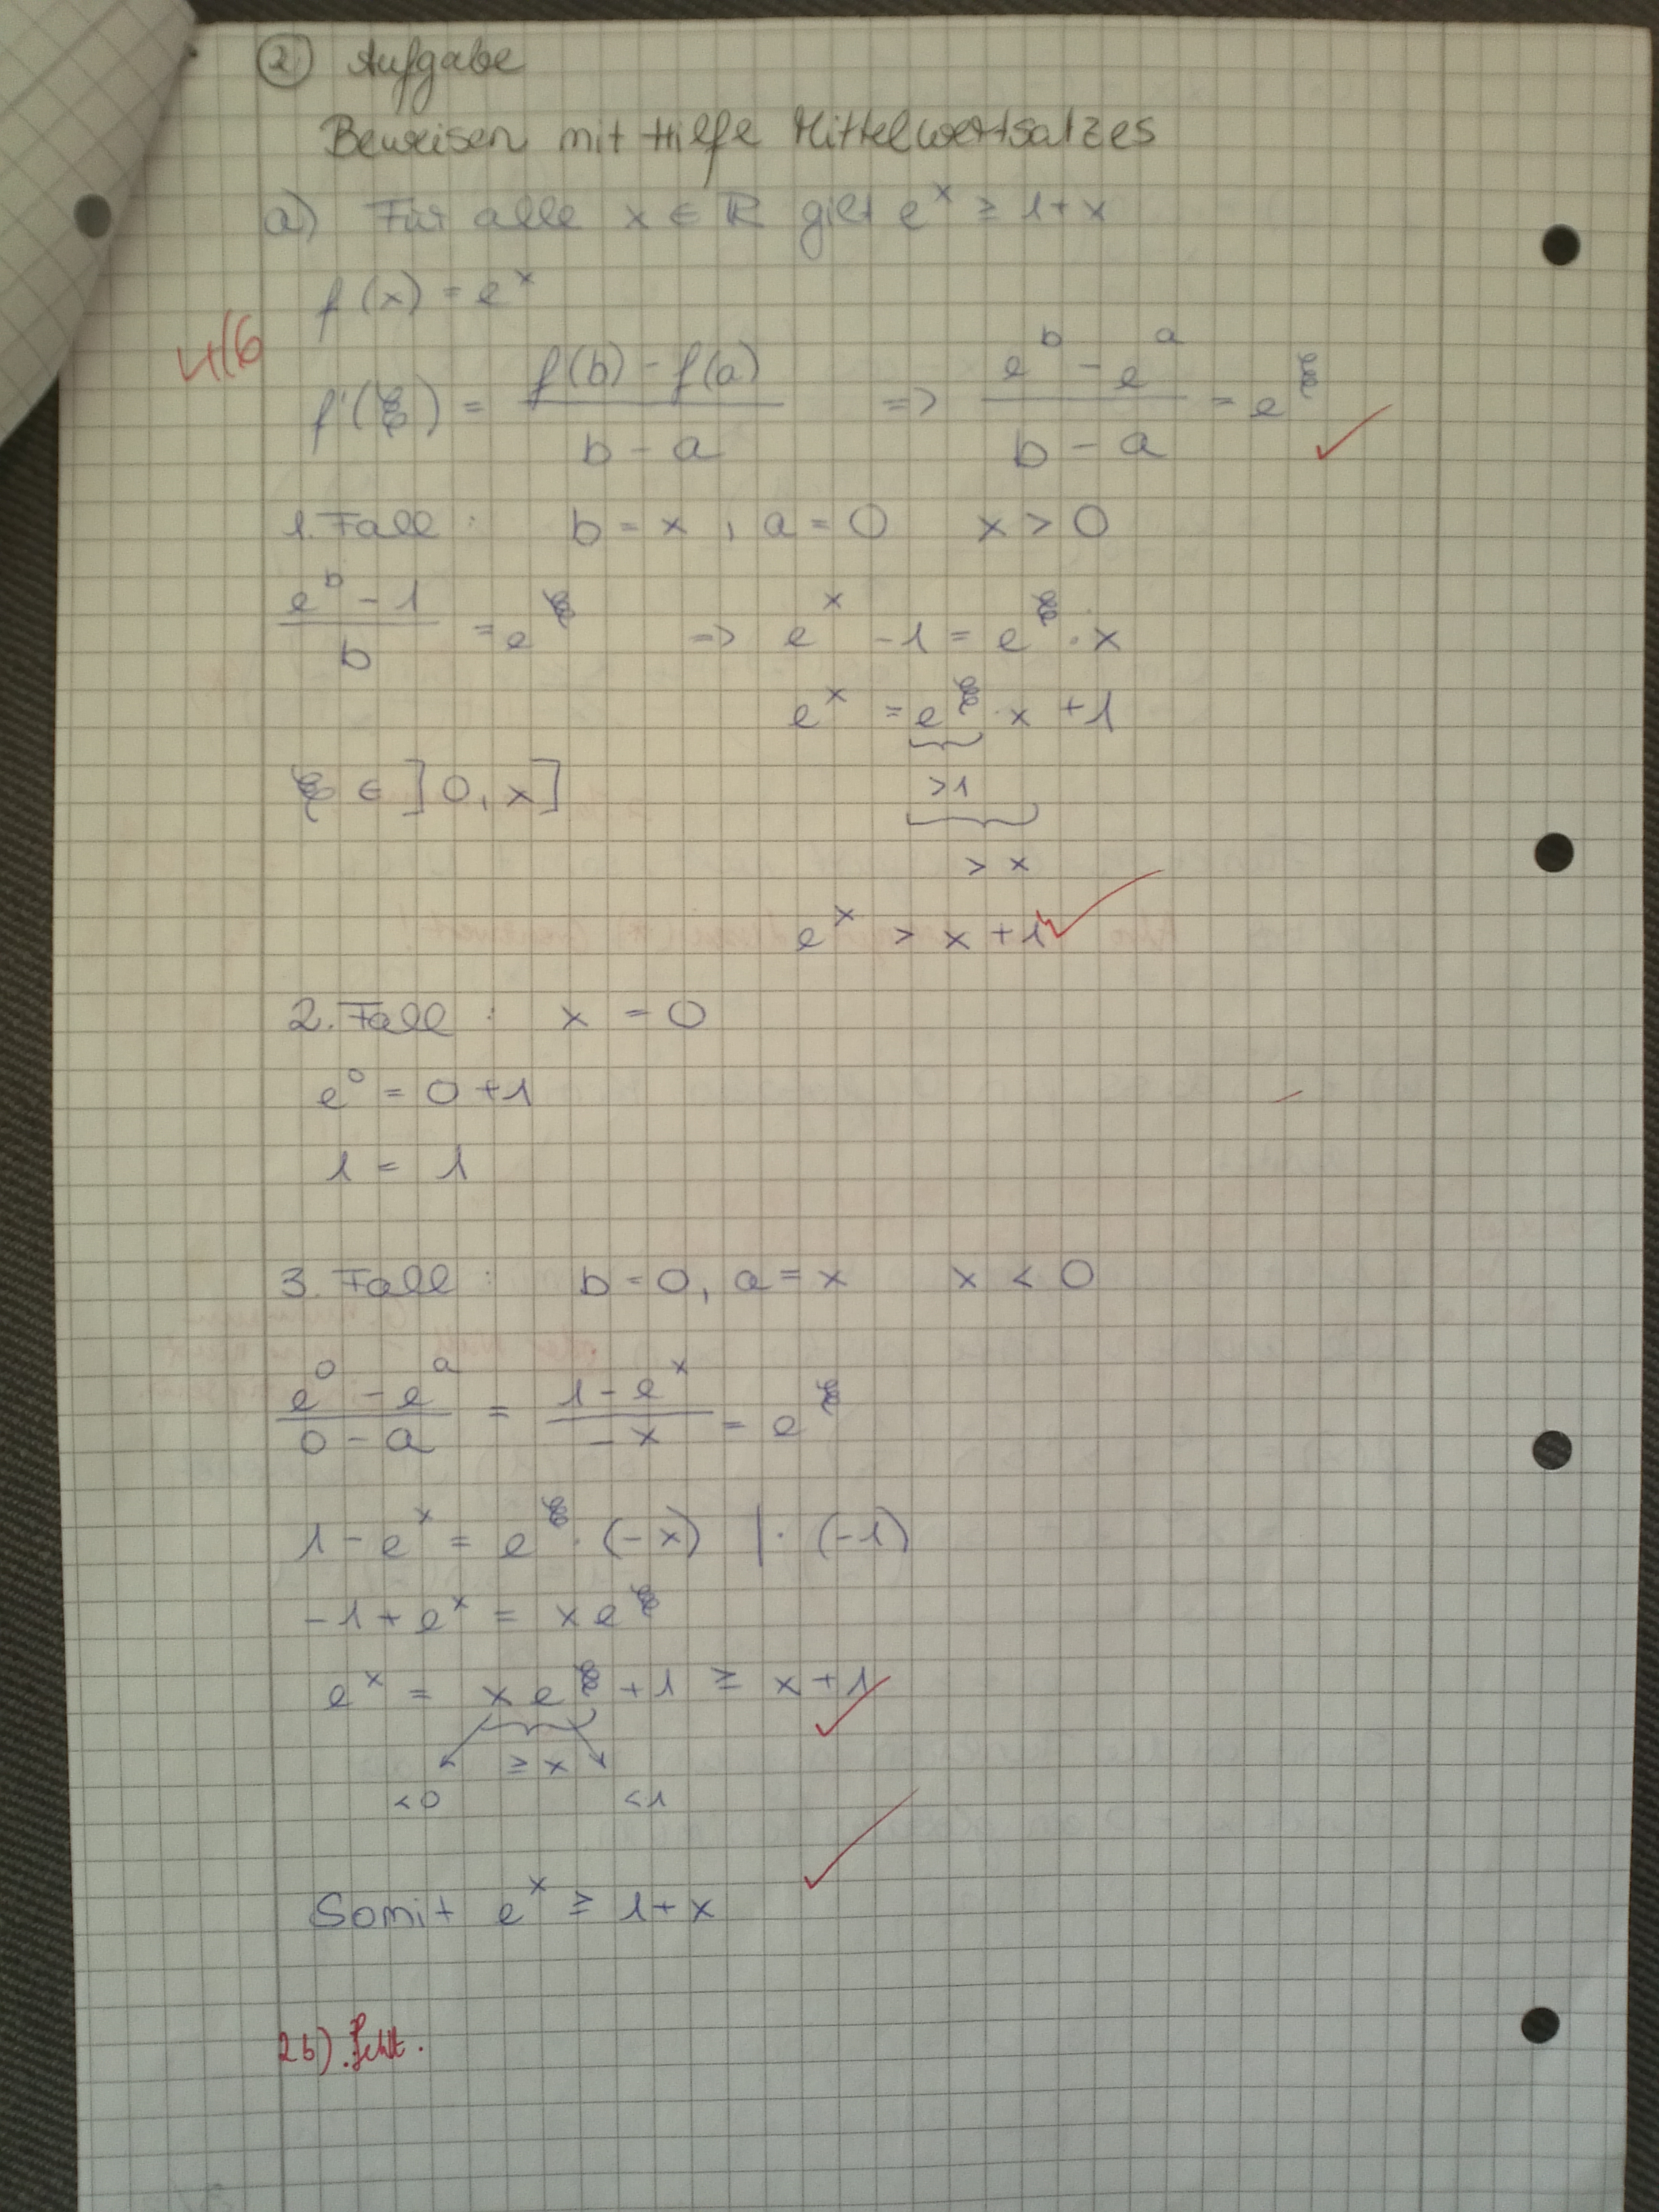 ② Aufgabe
Beweisen mit Hilfe Mittelwertsatzes
a) Für alle x ∈ ℝ gilt e^x ≥ 1+x
f(x) = e^x
4/6
f'(ξ) = (f(b) - f(a)) / (b - a) => (e^b - e^a) / (b - a) = e^ξ ✓
1. Fall: b = x, a = 0 x > 0
(e^b - 1) / b = e^ξ => e^x - 1 = e^ξ · x
e^x = e^ξ · x + 1
ξ ∈ ]0, x] >1
> x
e^x > x + 1 ✓
2. Fall: x = 0
e^0 = 0 + 1
1 = 1
3. Fall: b = 0, a = x x < 0
(e^0 - e^a) / (0 - a) = (1 - e^x) / (-x) = e^ξ
1 - e^x = e^ξ · (-x) | · (-1)
-1 + e^x = x e^ξ
e^x = x e^ξ + 1 ≥ x + 1 ✓
≥ x
<0 <1
Somit e^x ≥ 1 + x ✓
2b) fehlt.